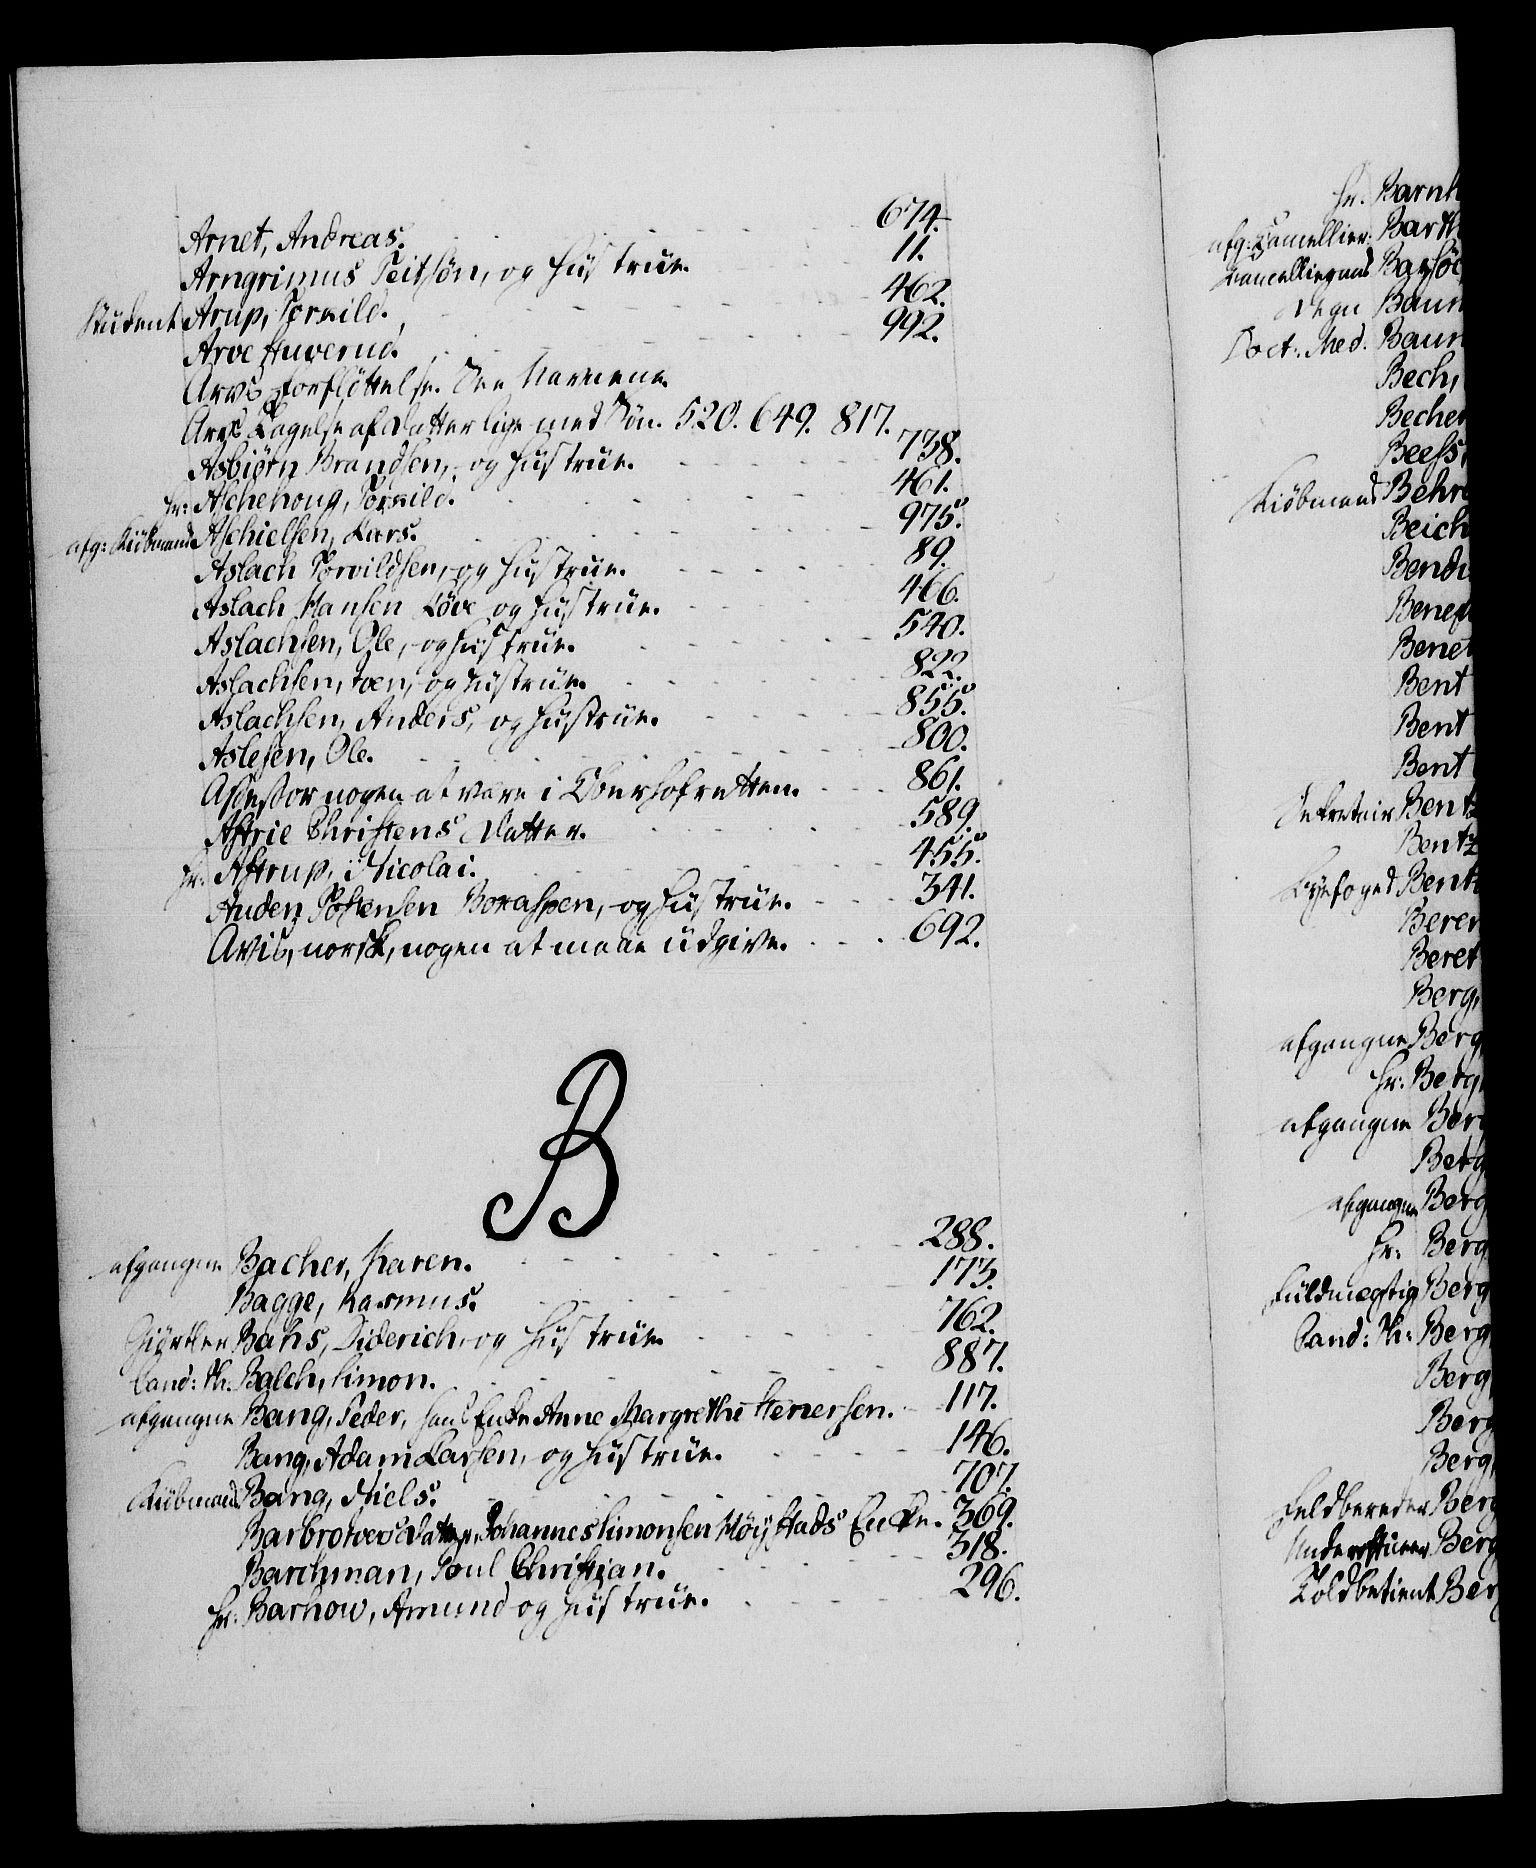 Arnet, Andreas. 674.
Arngrimus Teitsøn, og Hustrue. 11.
Student Arup, Torkild. 462.
Arve Huverud. 992.
Arvs Forfløttelse. See Navnene.
Arvs Tagelse af Datter lige med Søn. 520. 649. 817.
Asbiørn Brandsen, og Hustrue. 738.
Hr: Aschehoug, Torkild. 461.
afg: Kiøbmand Aschielsen, Lars. 975.
Aslach Torvildsen, og Hustrue. 89.
Aslach Hansen Løve og Hustrue. 466.
Aslachsen, Ole, og Hustrue. 540.
Aslachsen, Iven, og Hustrue. 822.
Aslachsen, Anders, og Hustrue. 855.
Aslesen, Ole. 800.
Assessor nogen at være i Oberhofretten. 861.
Astrie Christens Datter. 589.
Hr: Astrup, Nicolai. 455.
Auden Tostensen Boraspen, og Hustrue. 341.
Avis, norsk, nogen at maae udgive. 692.
B
afgangne Bacher, Karen. 288.
Bagge, Rasmus. 173.
Giørtler Bahs, Diderich, og Hustrue 762.
Cand: Th. Balch, Simon. 887.
afgangne Bang, Peder, hans Enke Anne Margrethe Henersen. 117.
Bang, Adam Larsen, og Hustrue. 146.
Kiøbmand Bang, Niels. 707.
Barbro Datter, Johannes Simonsen Høystads Encke. 369.
Barchman, Poul Christian. 318.
Hr: Barhow, Amund og Hustrue. 296.
Hr. Barnh
afg: Cancellier: Barth
Cancelliraad Barsøe
Degn Baum
Doct: Med. Baum
Bech,
Becher
Beess,
Kiøbmand Behre
Beich
Bendi
Benef
Benet
Bent
Bent
Bent
Sekretair Bentz
Bentz
Byefoged Bentz
Beren
Beret
Berg,
afgangne Berg
Hr: Berg,
afgangne Berg
Berg,
afgangne Berg
Hr: Berg
Fuldmegtig Berg
Cand: Th: Berg,
Berg,
Berg
Berg,
Feldbereder Berg
Underofficeer Berg
Toldbetient Berg